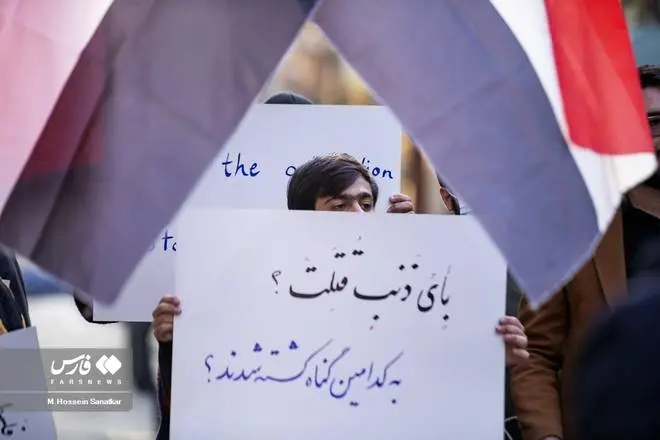 the
بأی ذنب قتلت ؟
به کدامین گناه کشته شدند ؟
فارس
FARSNEWS
M.Hossein Sanatkar